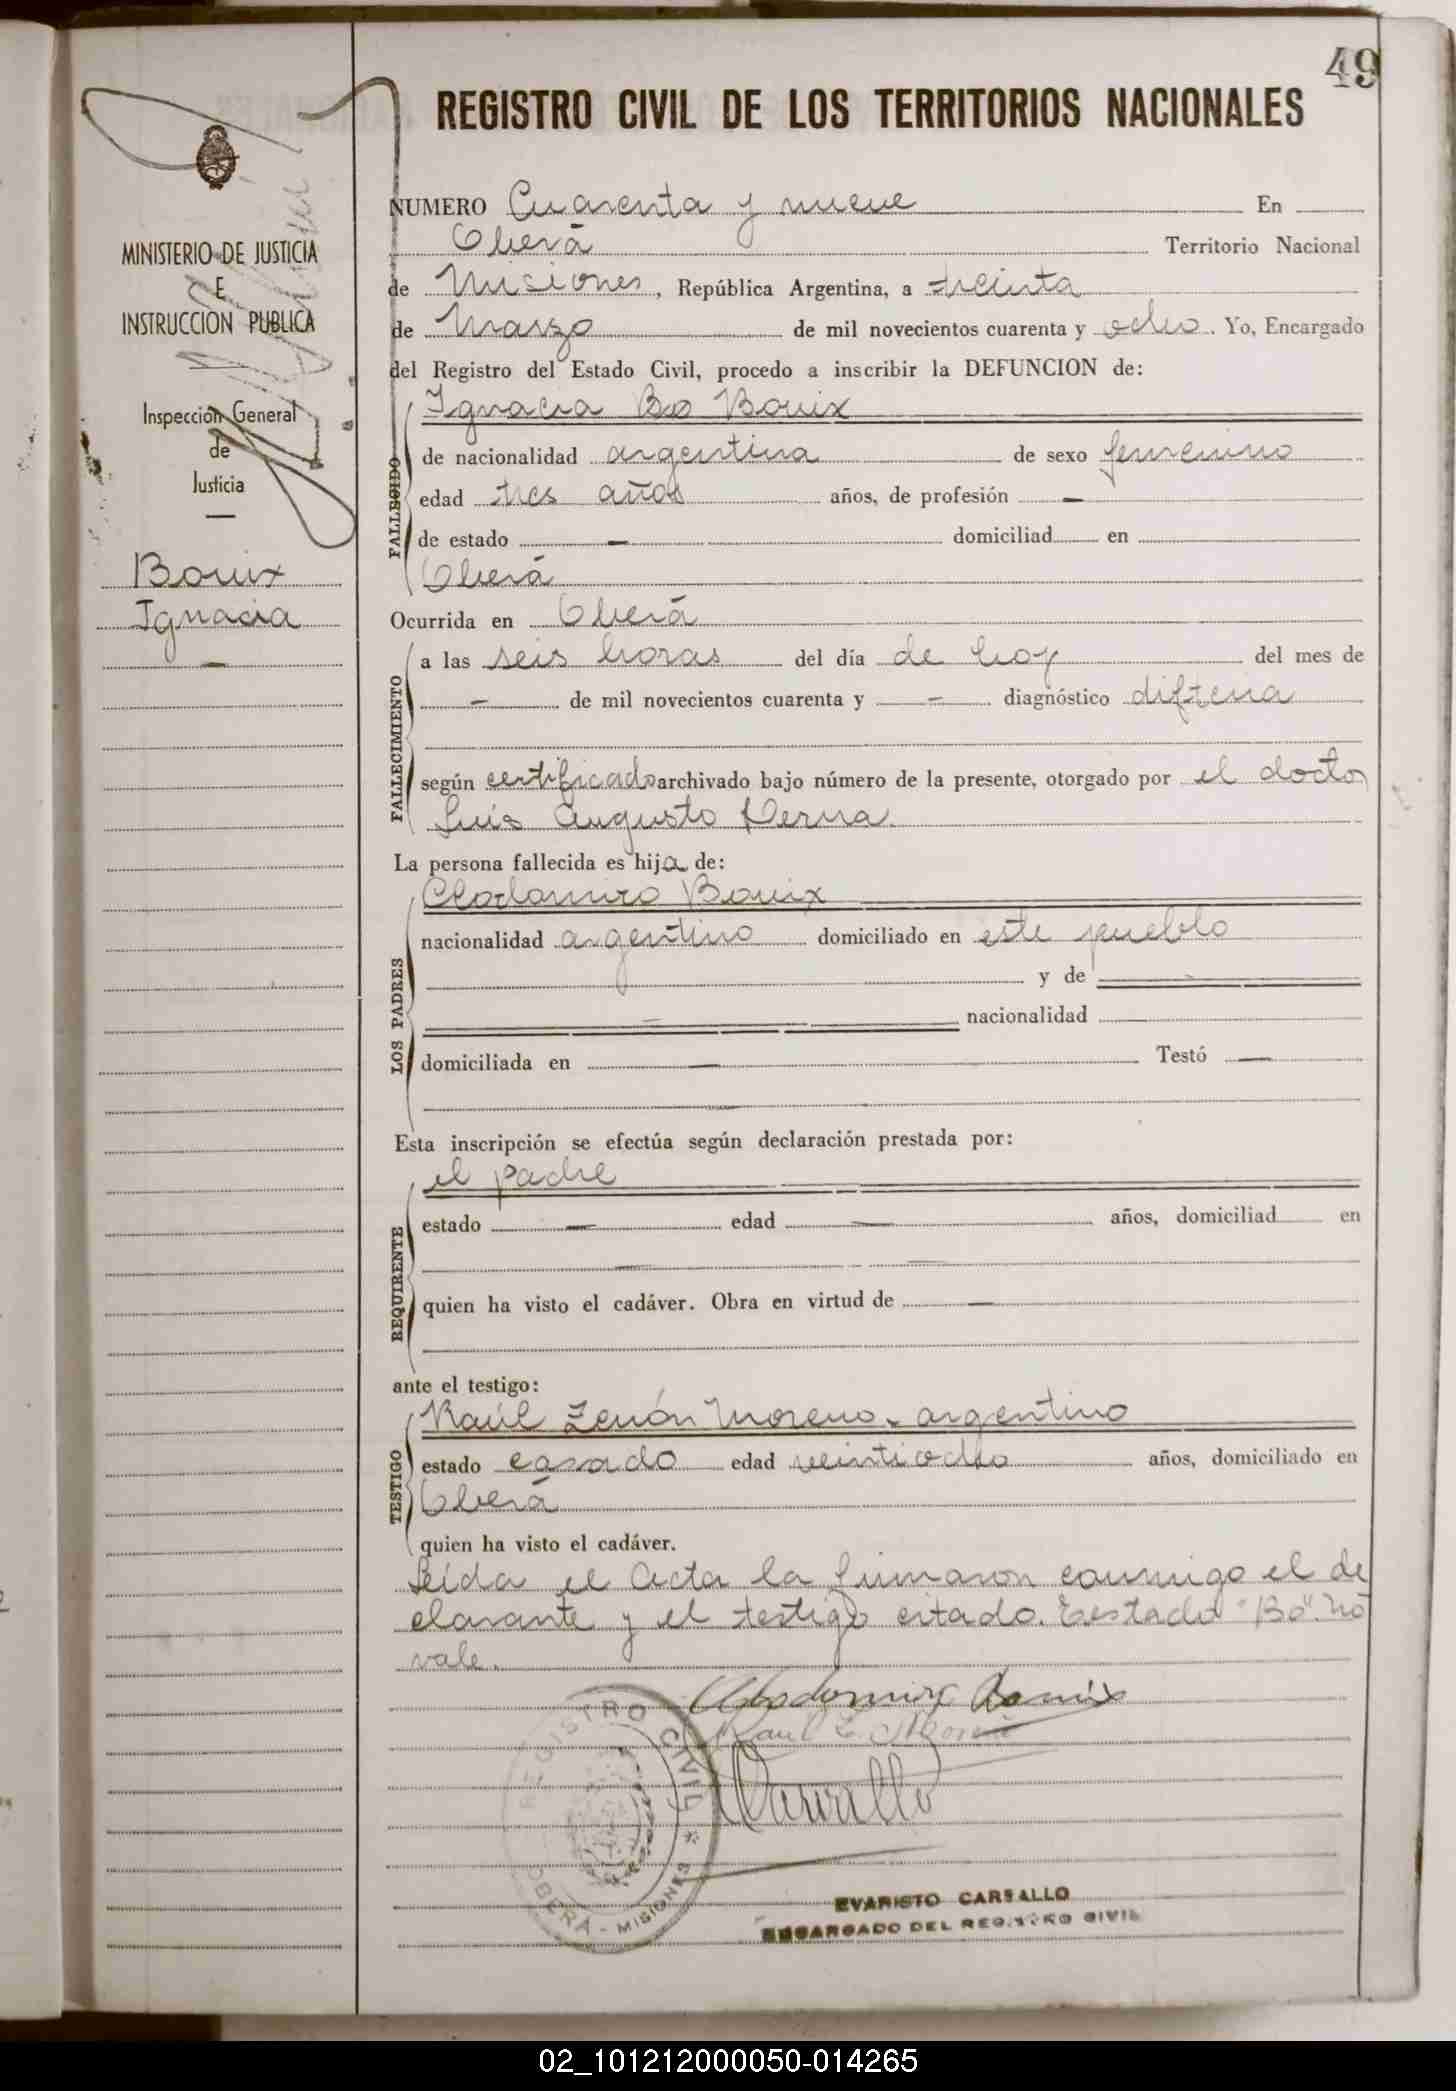 49
REGISTRO CIVIL DE LOS TERRITORIOS NACIONALES
MINISTERIO DE JUSTICIA
E
INSTRUCCIÓN PUBLICA
Inspección General
de
Justicia
Bouix
Ignacia
NUMERO Cuarenta y nueve En
Oberá Territorio Nacional
de Misiones, República Argentina, a treinta
de Marzo de mil novecientos cuarenta y ocho. Yo, Encargado
del Registro del Estado Civil, procedo a inscribir la DEFUNCION de:
Ignacia Bo Bouix
FALLECIDO
de nacionalidad argentina de sexo femenino
edad tres años años, de profesión —
de estado — domiciliad en
Oberá
Ocurrida en Oberá
FALLECIMIENTO
a las seis horas del día de hoy del mes de
— de mil novecientos cuarenta y — diagnóstico difteria
según certificado archivado bajo número de la presente, otorgado por el doctor
Luis Augusto Derna.
La persona fallecida es hija de:
LOS PADRES
Clodomiro Bouix
nacionalidad argentino domiciliado en este pueblo
y de
— nacionalidad
domiciliada en — Testó —
Esta inscripción se efectúa según declaración prestada por:
REQUIRENTE
el padre
estado — edad — años, domiciliad en
—
quien ha visto el cadáver. Obra en virtud de —
ante el testigo:
TESTIGO
Raúl Zenón Moreno. argentino
estado casado edad veintiocho años, domiciliado en
Oberá
quien ha visto el cadáver.
Leída el Acta la firmaron conmigo el de
clarante y el testigo citado. Testado "Bo". no
vale.
Clodomiro Bouix
Raul Z. Moreno
Carvallo
REGISTRO CIVIL * OBERÁ - MISIONES
EVARISTO CARVALLO
ENCARGADO DEL REGISTRO CIVIL
02_101212000050-014265